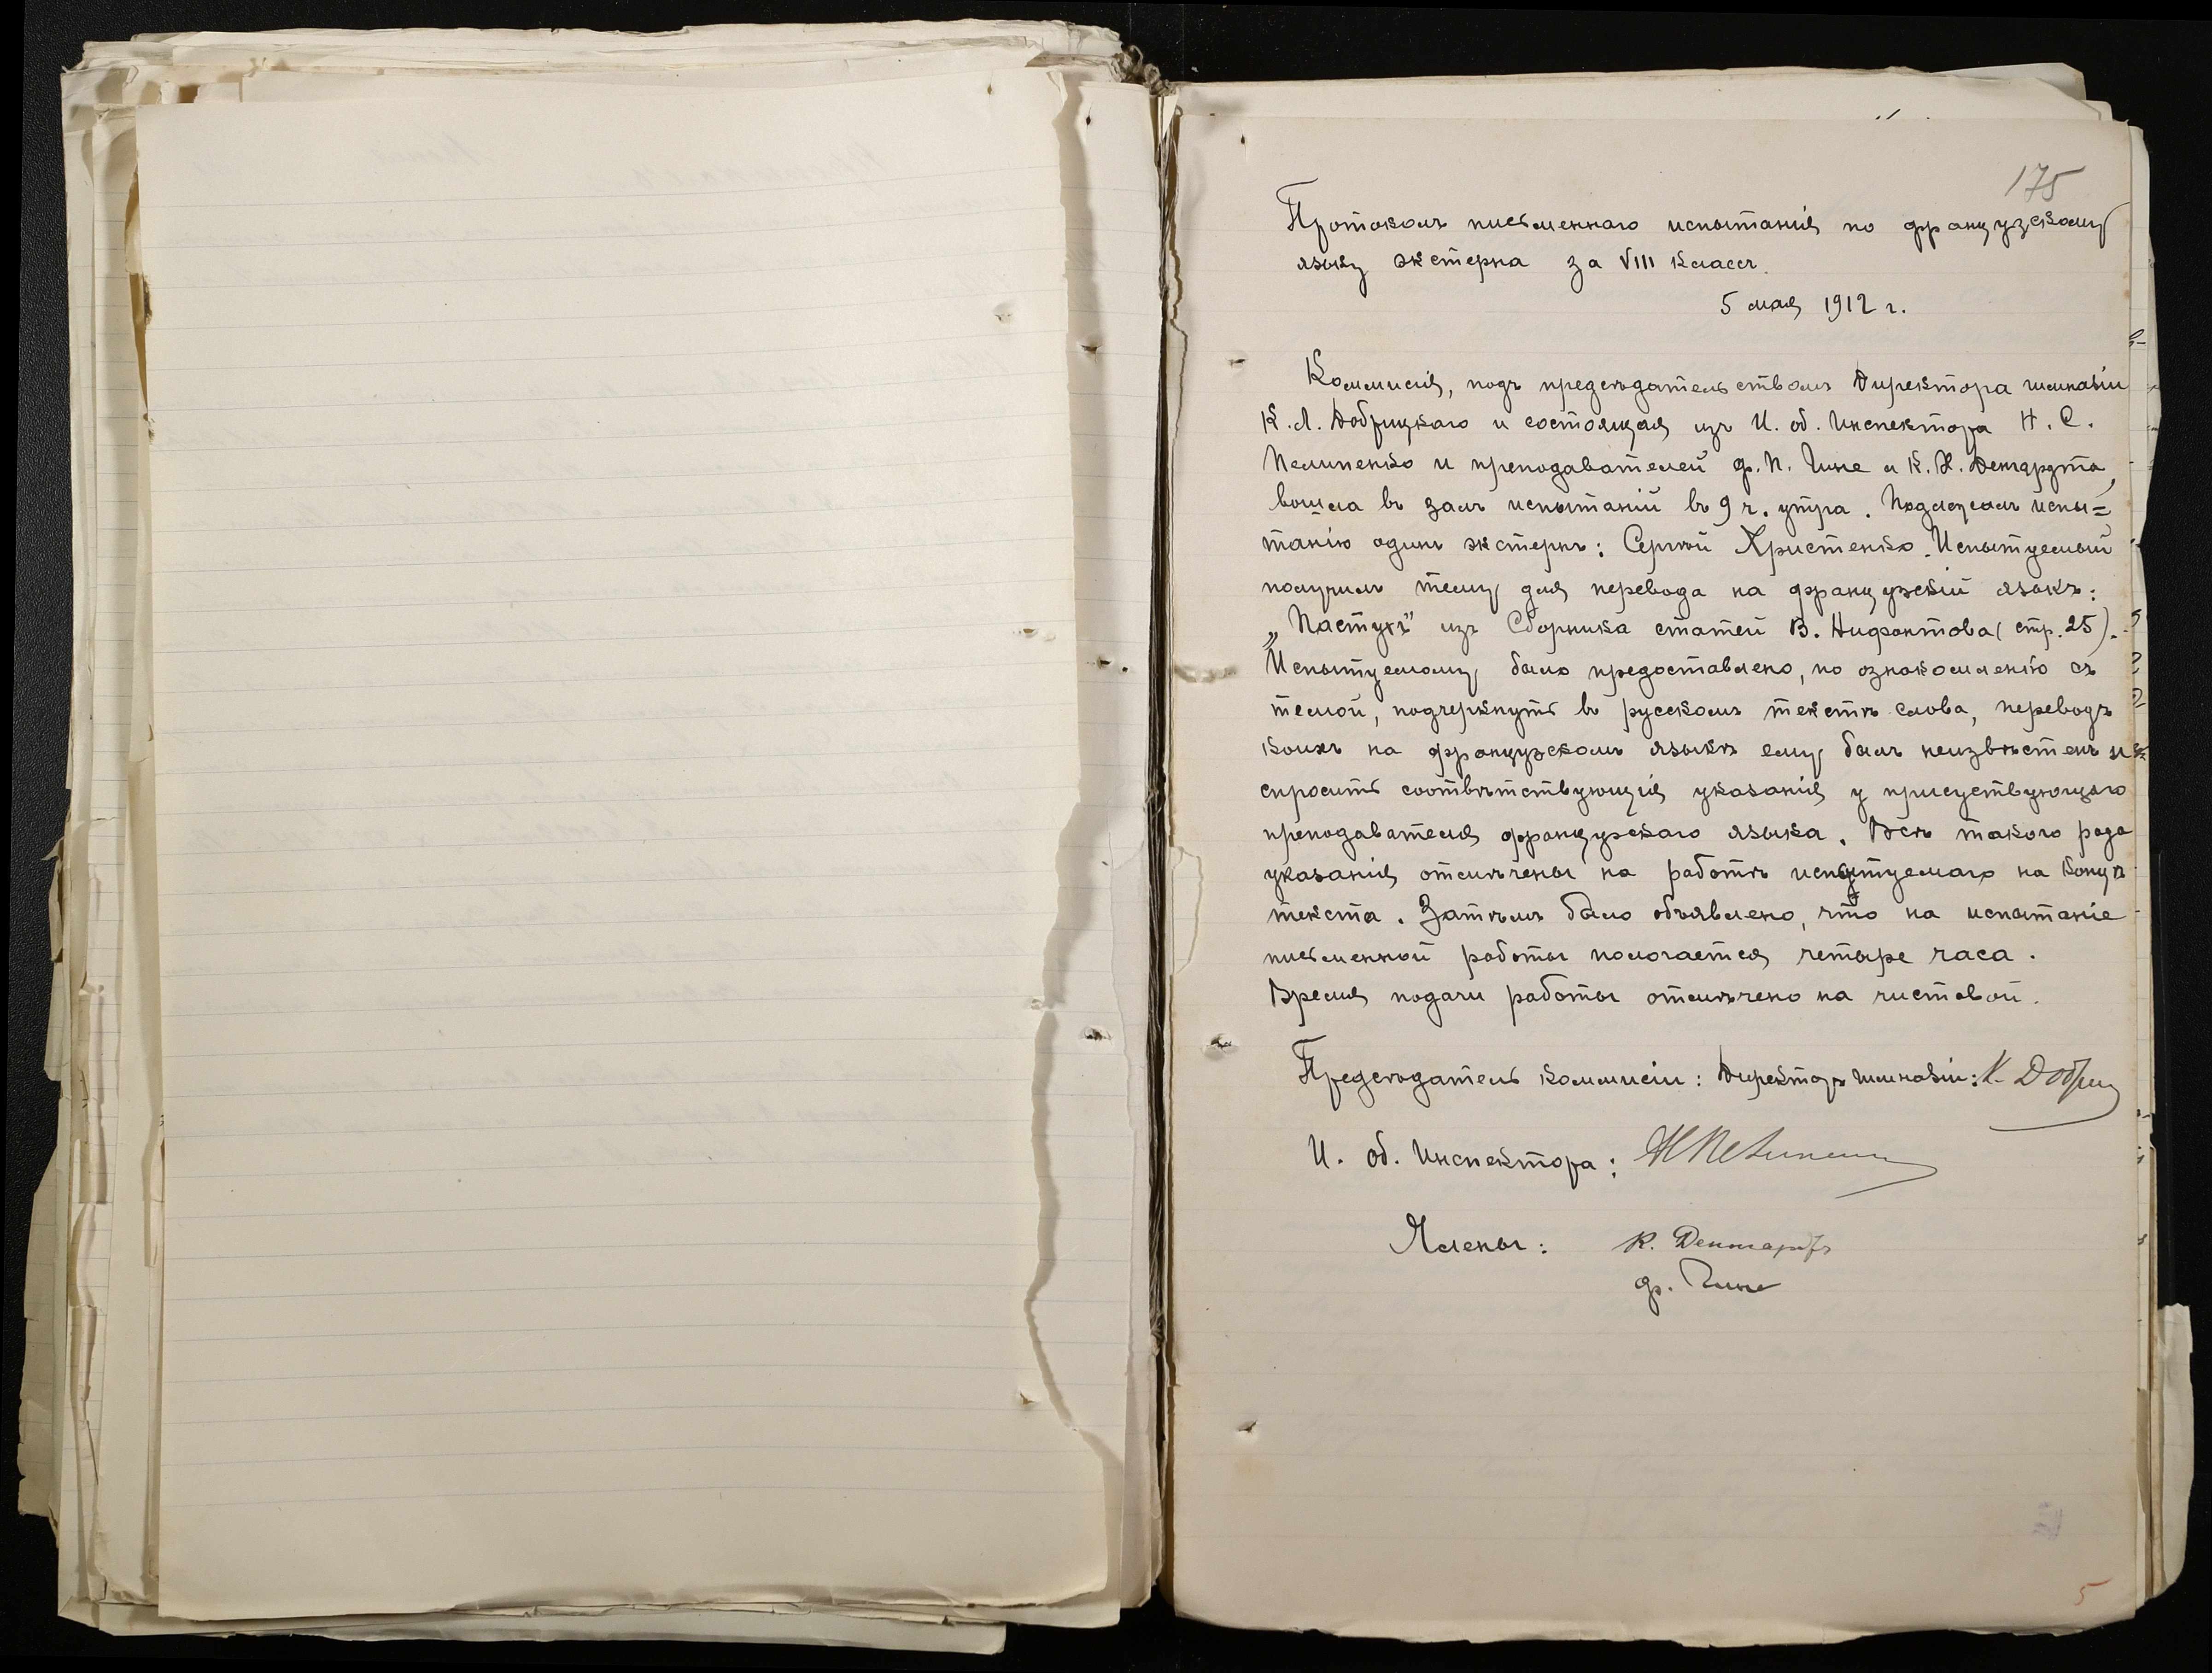 175
Протоколъ письменнаго испытанія по французскому
языку экстерна за VIII классъ.
5 мая 1912 г.
Коммисія, подъ предсѣдательствомъ Директора гимназіи
К. Л. Добрицкаго и состоящая изъ И. об. Инспектора Н. С.
Пелипенко и преподавателей Ф. П. Гине и К. Х. Денгардта,
вошла въ залъ испытаній въ 9 ч. утра. Подлежалъ испы=
танію одинъ экстернъ: Сергѣй Христенко. Испытуемый
получилъ тему для перевода на французскій языкъ:
„Пастухъ" изъ Сборника статей В. Нифонтова (стр. 25).
Испытуемому было предоставлено, по ознакомленію съ
темой, подчеркнуть въ русскомъ текстѣ слова, переводъ
коихъ на французскомъ языкѣ ему былъ неизвѣстенъ и
спросить соотвѣтствующія указанія у присуствующаго
преподавателя французскаго языка. Всѣ такого рода
указанія отмѣчены на работѣ испытуемаго на концѣ
текста. Затѣмъ было объявлено, что на испытаніе
письменной работы пологается четыре часа.
Время подачи работы отмѣчено на чистовой.
Предсѣдатель коммисіи: Директоръ гимназіи: К. Добриц
И. об. Инспектора: Н Пелипенко
Члены: К. Денгардтъ
Ф. Гине
5